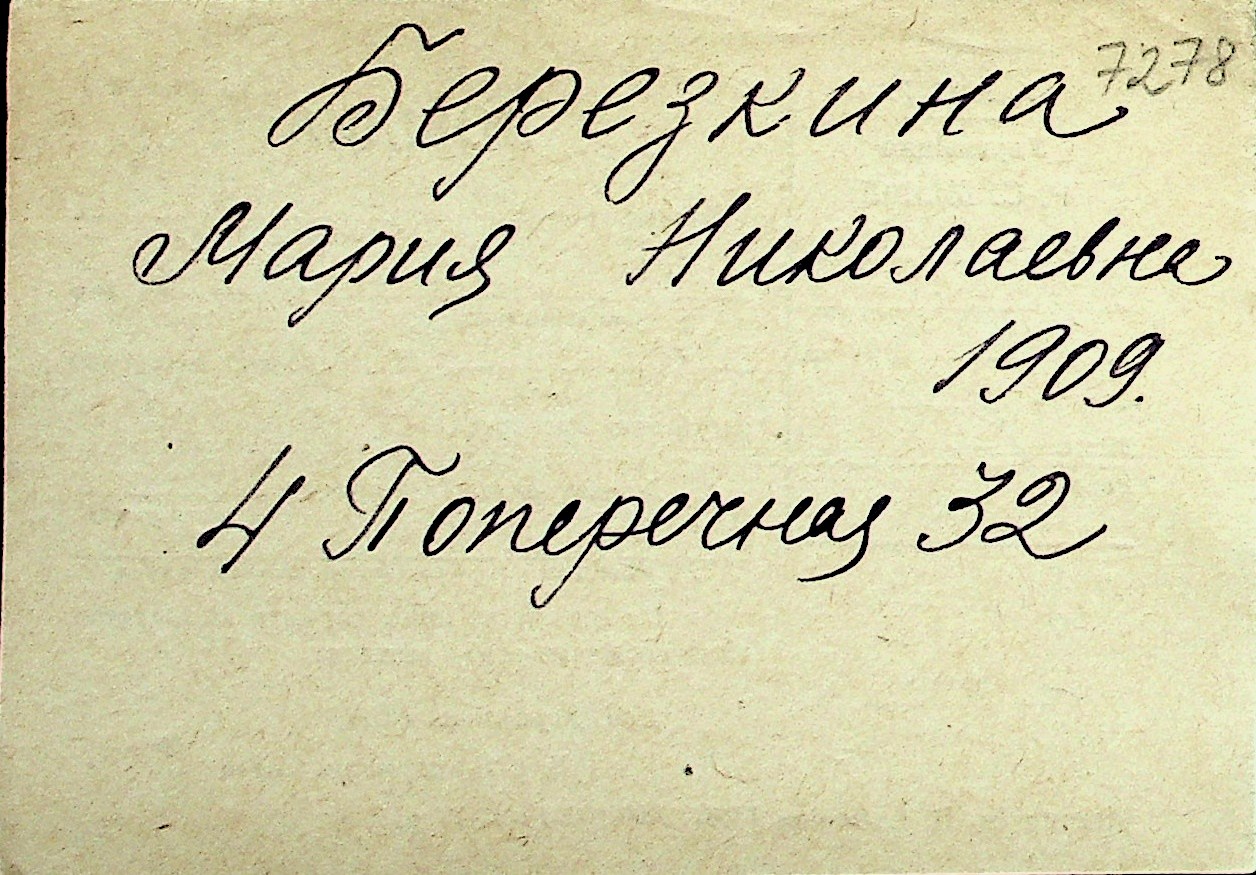 7278
Березкина
Мария Николаевна
1909.
4 Поперечная 32